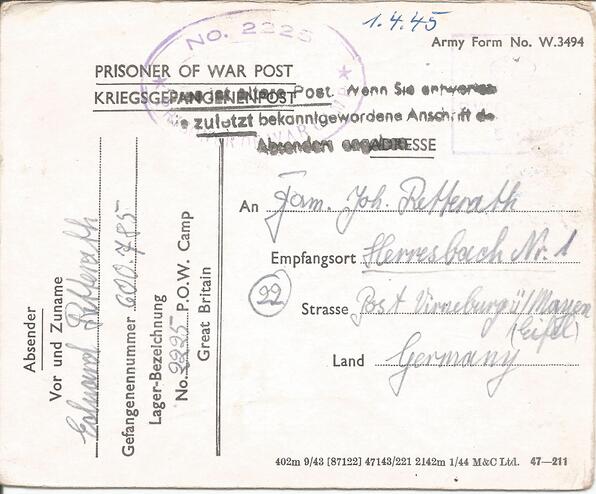 1.4.45
NO. 2225
Army Form No. W.3494
PRISONER OF WAR POST
KRIEGSGEFANGENENPOST
Dies ist ältere Post. Wenn Sie antworten
Sie zuletzt bekanntgewordene Anschrift de
Absenders angeben
ADRESSE
An Fam. Joh. Retterath
Empfangsort Herresbach Nr. 1
22
Strasse Post Virneburg ü/Mayen
(Eifel)
Land Germany
Absender
Vor und Zuname
Eduard Retterath
Gefangenennummer 600.785
Lager-Bezeichnung
No. 2225 P.O.W. Camp
Great Britain
402m 9/43 [87122] 47143/221 2142m 1/44 M&C Ltd. 47—211